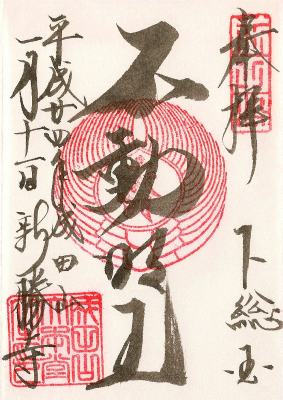 奉拝
下総国
不動明王
平成廿四年成田山
一月十一日新勝寺